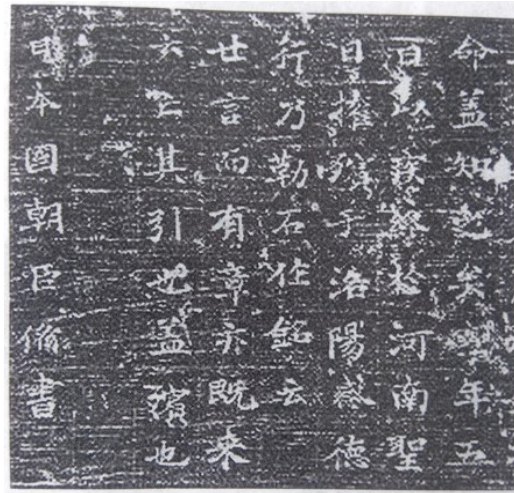 命盖知之矣年五
以疾終於河南聖
日權殯于洛陽感德
行乃勒石作銘云
言而有章亦既来
其引也盖殯也
日本國朝臣俻書